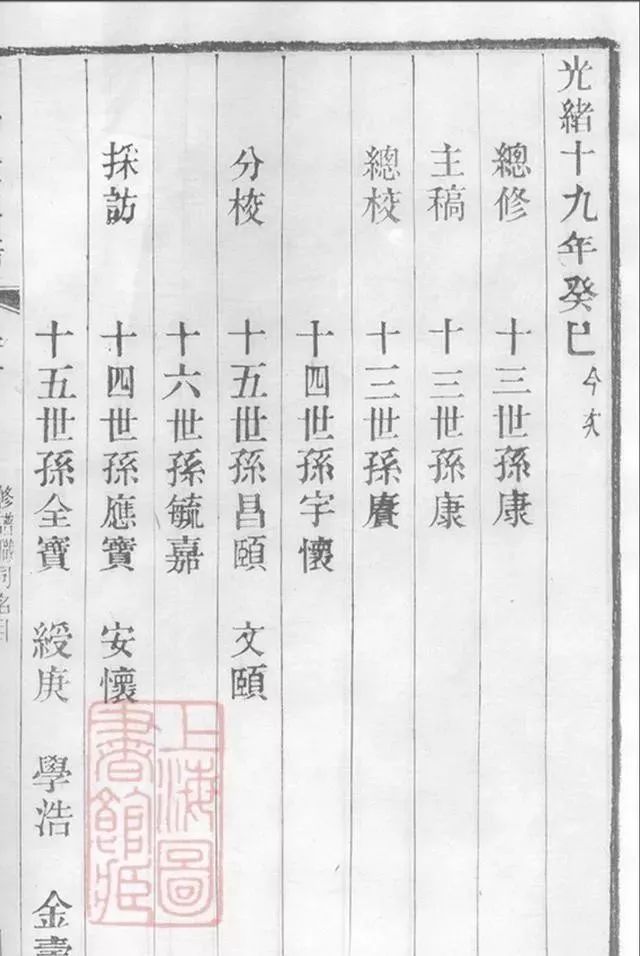 光緒十九年癸巳今次
總修 十三世孫康
主稿 十三世孫康
總校 十三世孫賡
十四世孫宇懷
分校 十五世孫昌頤 文頤
十六世孫毓嘉
採訪 十四世孫應寶 安懷
十五世孫全寶 綬庚 學浩 金壽
修譜職司名目
上海圖
書館藏